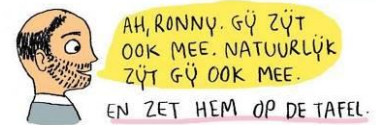 AH, RONNY. GŸ ZŸT
OOK MEE. NATUURLŸK
ZŸT GŸ OOK MEE.
EN ZET HEM OP DE TAFEL.